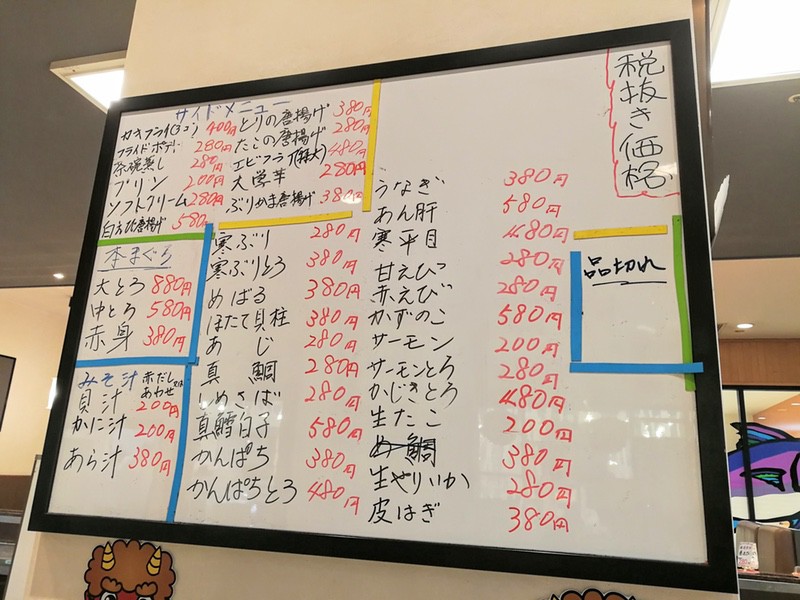 税抜き価格
サイドメニュー
カキフライ(3コ) 400円
フライドポテト 280円
茶碗蒸し 280円
プリン 200円
ソフトクリーム 280円
白えび唐揚げ 580円
とりの唐揚げ 380円
たこの唐揚げ 280円
エビフライ(特大) 480円
大学芋 280円
ぶりかま唐揚げ 380円
本まぐろ
大とろ 880円
中とろ 580円
赤身 380円
みそ汁 赤だし又は
あわせ
貝汁 200円
かに汁 200円
あら汁 380円
寒ぶり 280円
寒ぶりとろ 380円
めばる 380円
ほたて貝柱 380円
あじ 280円
真鯛 280円
しめさば 280円
真鱈白子 580円
かんぱち 380円
かんぱちとろ 480円
うなぎ 380円
あん肝 580円
寒平目 480円
甘えび 280円
赤えび 280円
かずのこ 580円
サーモン 200円
サーモンとろ 280円
かじきとろ 480円
生たこ 200円
鯛 380円
生やりいか 280円
皮はぎ 380円
品切れ